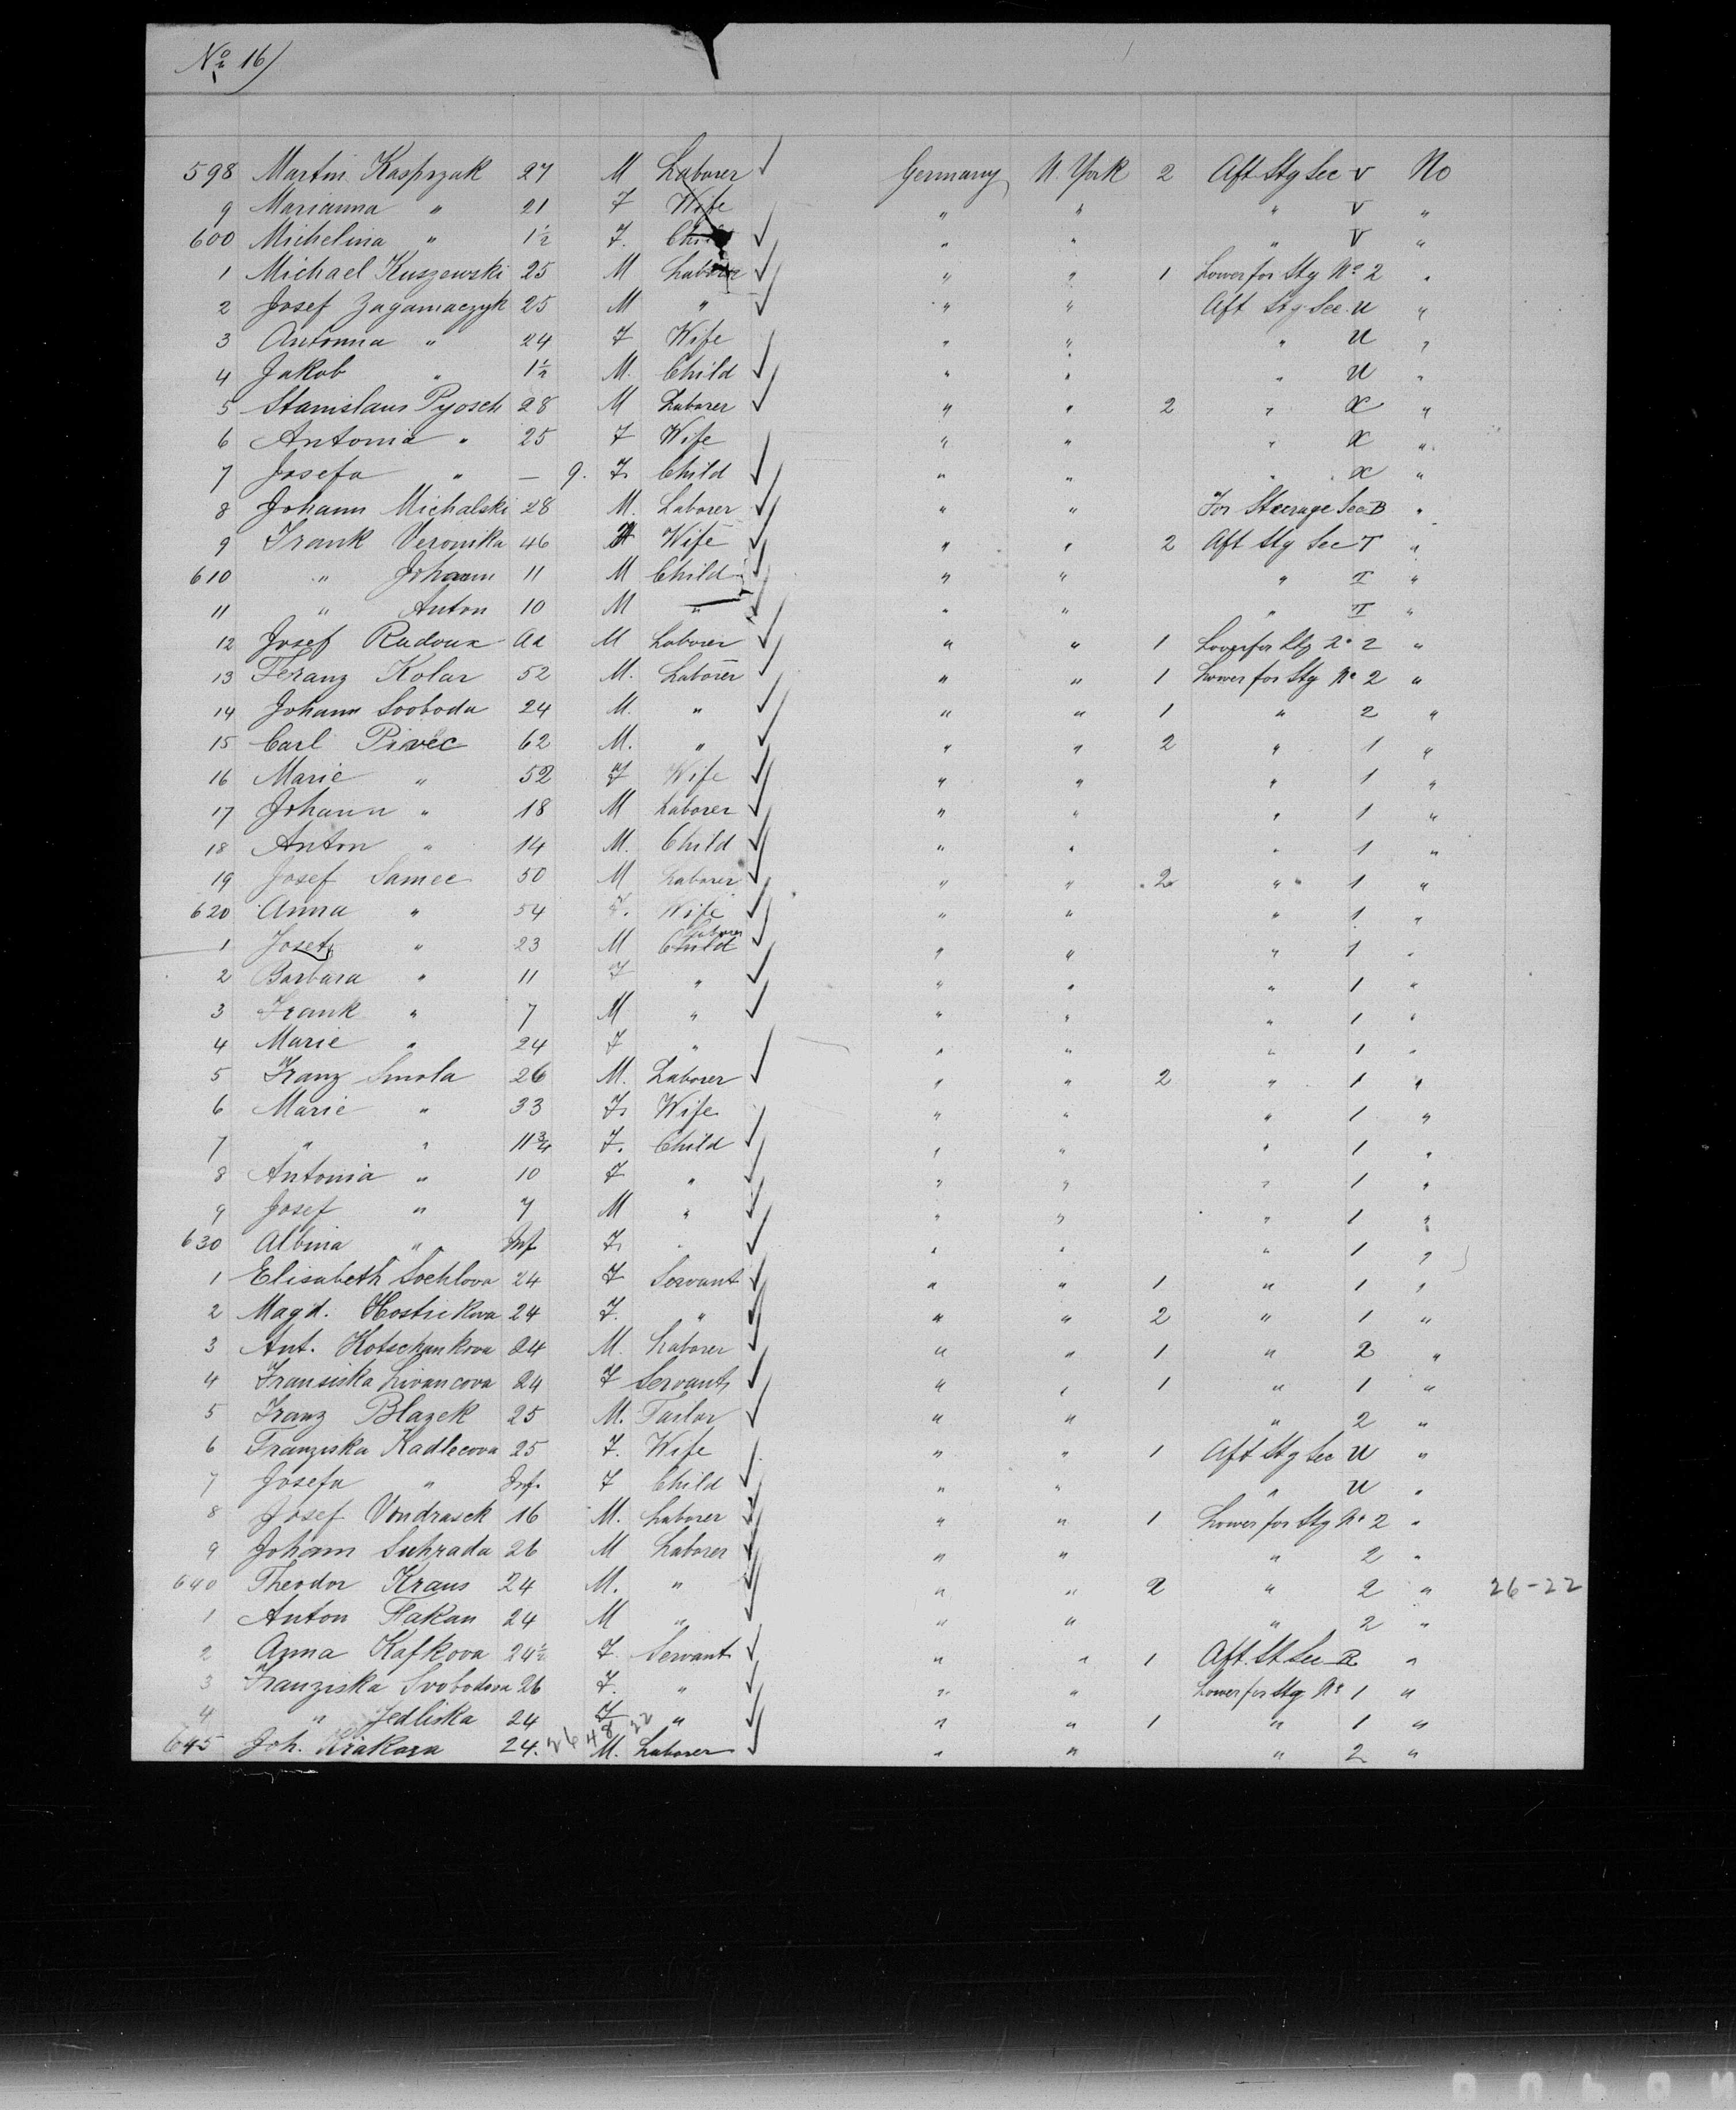 No 16)
598 Martin Kasprzak 27 M Laborer Germany N. York 2 Aft Stg Sec V No
9 Marianna " 21 F Wife " " " V "
600 Michelina " 1½ F. Child " " " V "
1 Michael Kuszewski 25 M Laborer " " 1 Lower for Stg No 2 "
2 Josef Zagamaczyk 25 M " " " Aft Stg Sec. U "
3 Antonna " 24 F Wife " " " U "
4 Jakob " 1½ M. Child " " " U "
5 Stanislaus Pyosch 28 M Laborer " " 2 " X "
6 Antonia " 25 F Wife " " " X "
7 Josefa " — 9. F. Child " " " X "
8 Johann Michalski 28 M. Laborer " " For Steerage Sec B "
9 Frank Veronika 46 Wife " " 2 Aft Stg Sec T "
610 " Johann 11 M Child " " " T "
11 " Anton 10 M " " " " T "
12 Josef Radoux M Laborer " " 1 Lower for Stg 2 "
13 Feranz Kolar 52 M. Laborer " " 1 Lower for Stg No 2 "
14 Johann Sooboda 24 M. " " " 1 " 2 "
15 Carl Pivec 62 M. " " " 2 " 1 "
16 Marie " 52 F Wife " " " 1 "
17 Johann " 18 M Laborer " " " 1 "
18 Anton " 14 M. Child " " " 1 "
19 Josef Samec 50 M Laborer " " 2 " 1 "
620 Anna " 54 F. Wife " " " 1 "
1 Josef " 23 M Child Laborer " " " 1 "
2 Barbara " 11 F " " " " 1 "
3 Frank " 7 M " " " " 1 "
4 Marie " 24 F " " " " 1 "
5 Franz Smola 26 M. Laborer " " 2 " 1 "
6 Marie " 33 F. Wife " " " 1 "
7 " " 11¾ F. Child " " " 1 "
8 Antonia " 10 F " " " " 1 "
9 Josef " 7 M " " " " 1 "
630 Albina " Inf. F. " " " " 1 "
1 Elisabeth Sochlova 24 F Servant " " 1 " 1 "
2 Magd. Hostickova 24 F. " " " 2 " 1 "
3 Ant. Kotschankova 24 M. Laborer " " 1 " 2 "
4 Fransiska Livancova 24 F Servant " " 1 " 1 "
5 Franz Blazek 25 M. Tailor " " " 2 "
6 Franziska Kadlecova 25 F. Wife " " 1 Aft Stg Sec U "
7 Josefa " Inf. F Child " " " U "
8 Josef Vondrasek 16 M. Laborer " " 1 Lower for Stg No 2 "
9 Johann Suhrada 26 M Laborer " " " 2 "
640 Theodor Kraus 24 M. " " " 2 " 2 " 26-22
1 Anton Flakan 24 M " " " " 2 "
2 Anna Kafkova 24½ F. Servant " " 1 Aft. St Sec R "
3 Franziska Svobodova 26 F. " " " Lower for Stg No 1 "
4 " Jedliska 24 F " " " 1 " 1 "
645 Joh. 24. 26 48 22 M. Laborer " " " 2 "